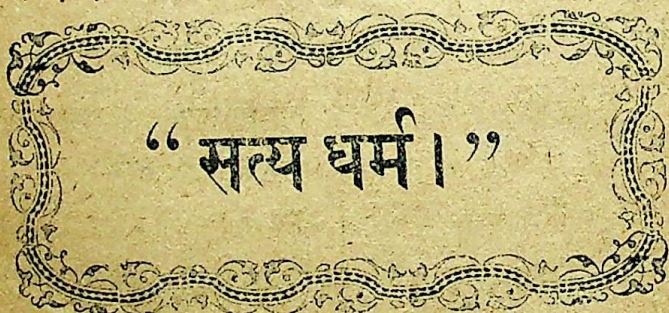 “ सत्य धर्म । ”